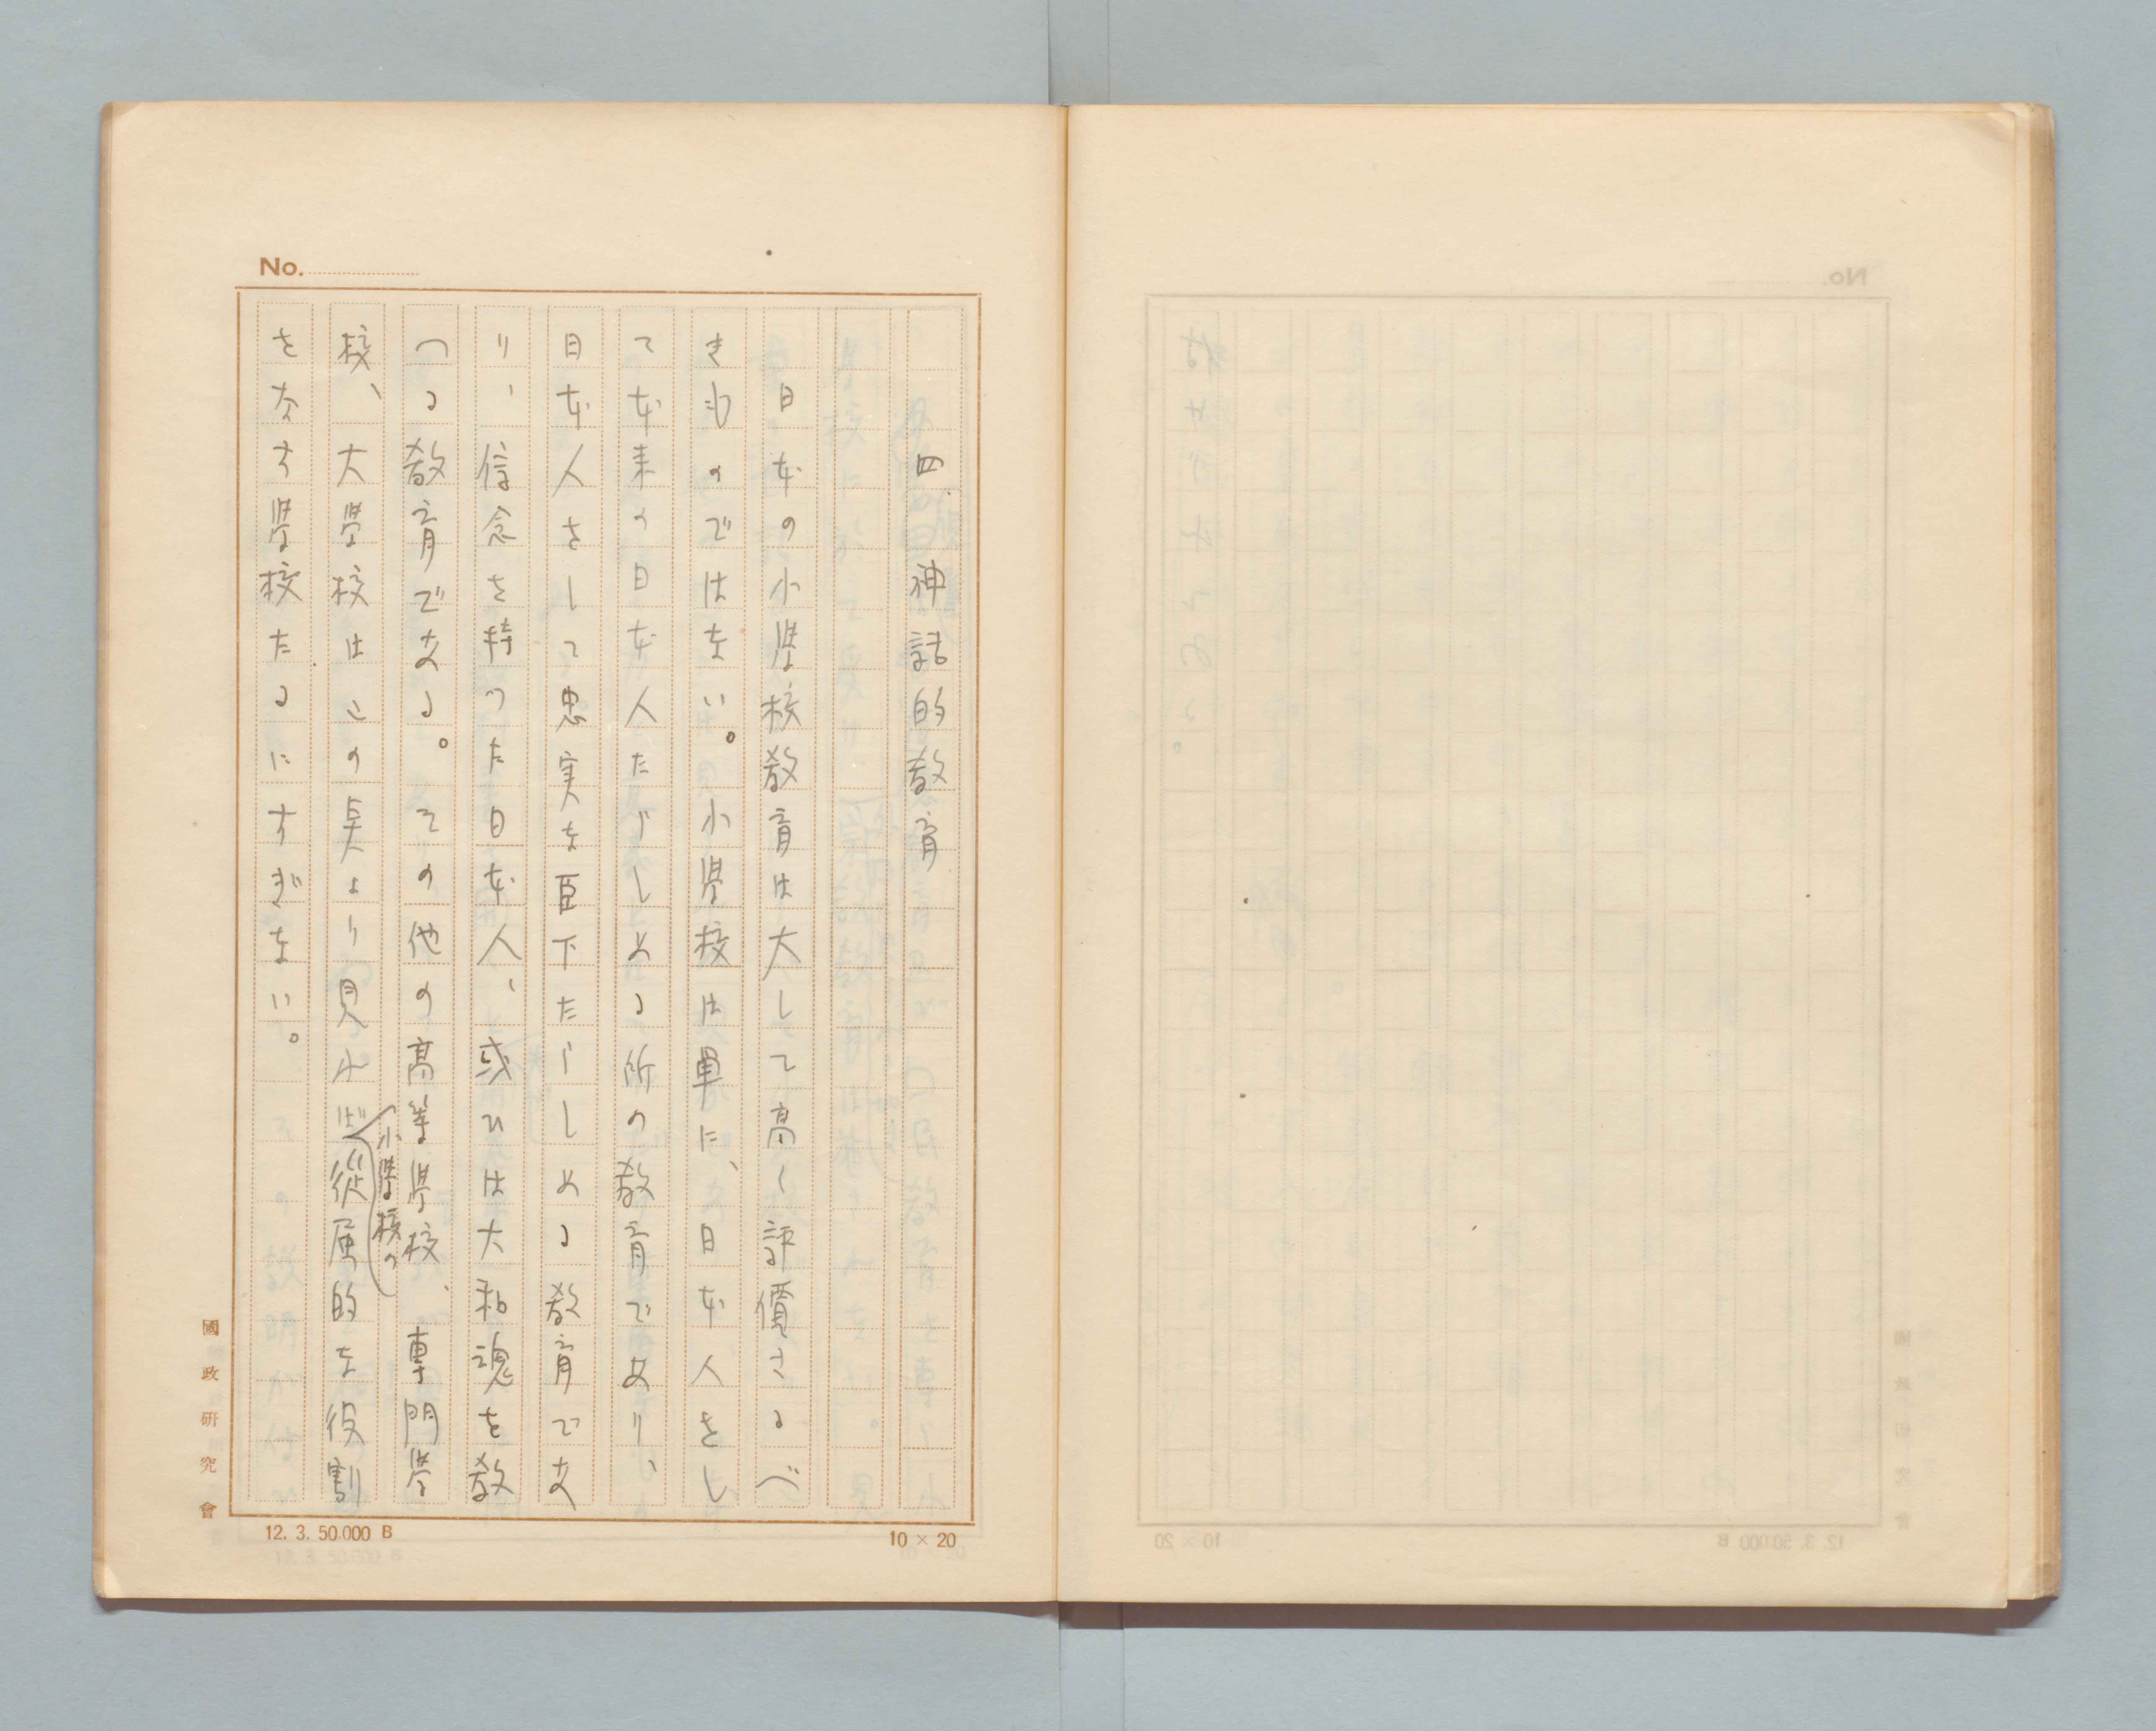 No.
四、神話的教育
日本の小學校教育は大して高く評價さるべ
きものではない。小學校は單に、日本人をし
て本來の日本人たらしめる所の教育であり、
日本人をして忠実な臣下たらしめる教育であ
り、信念を持つた日本人、或ひは大和魂を教
へる教育である。その他の高等學校、專門學
校、大學校はこの点より見れば小學校の從属的な役割
をなす學校たるにすぎない。
國政研究會
12. 3. 50.000 B
10 × 20